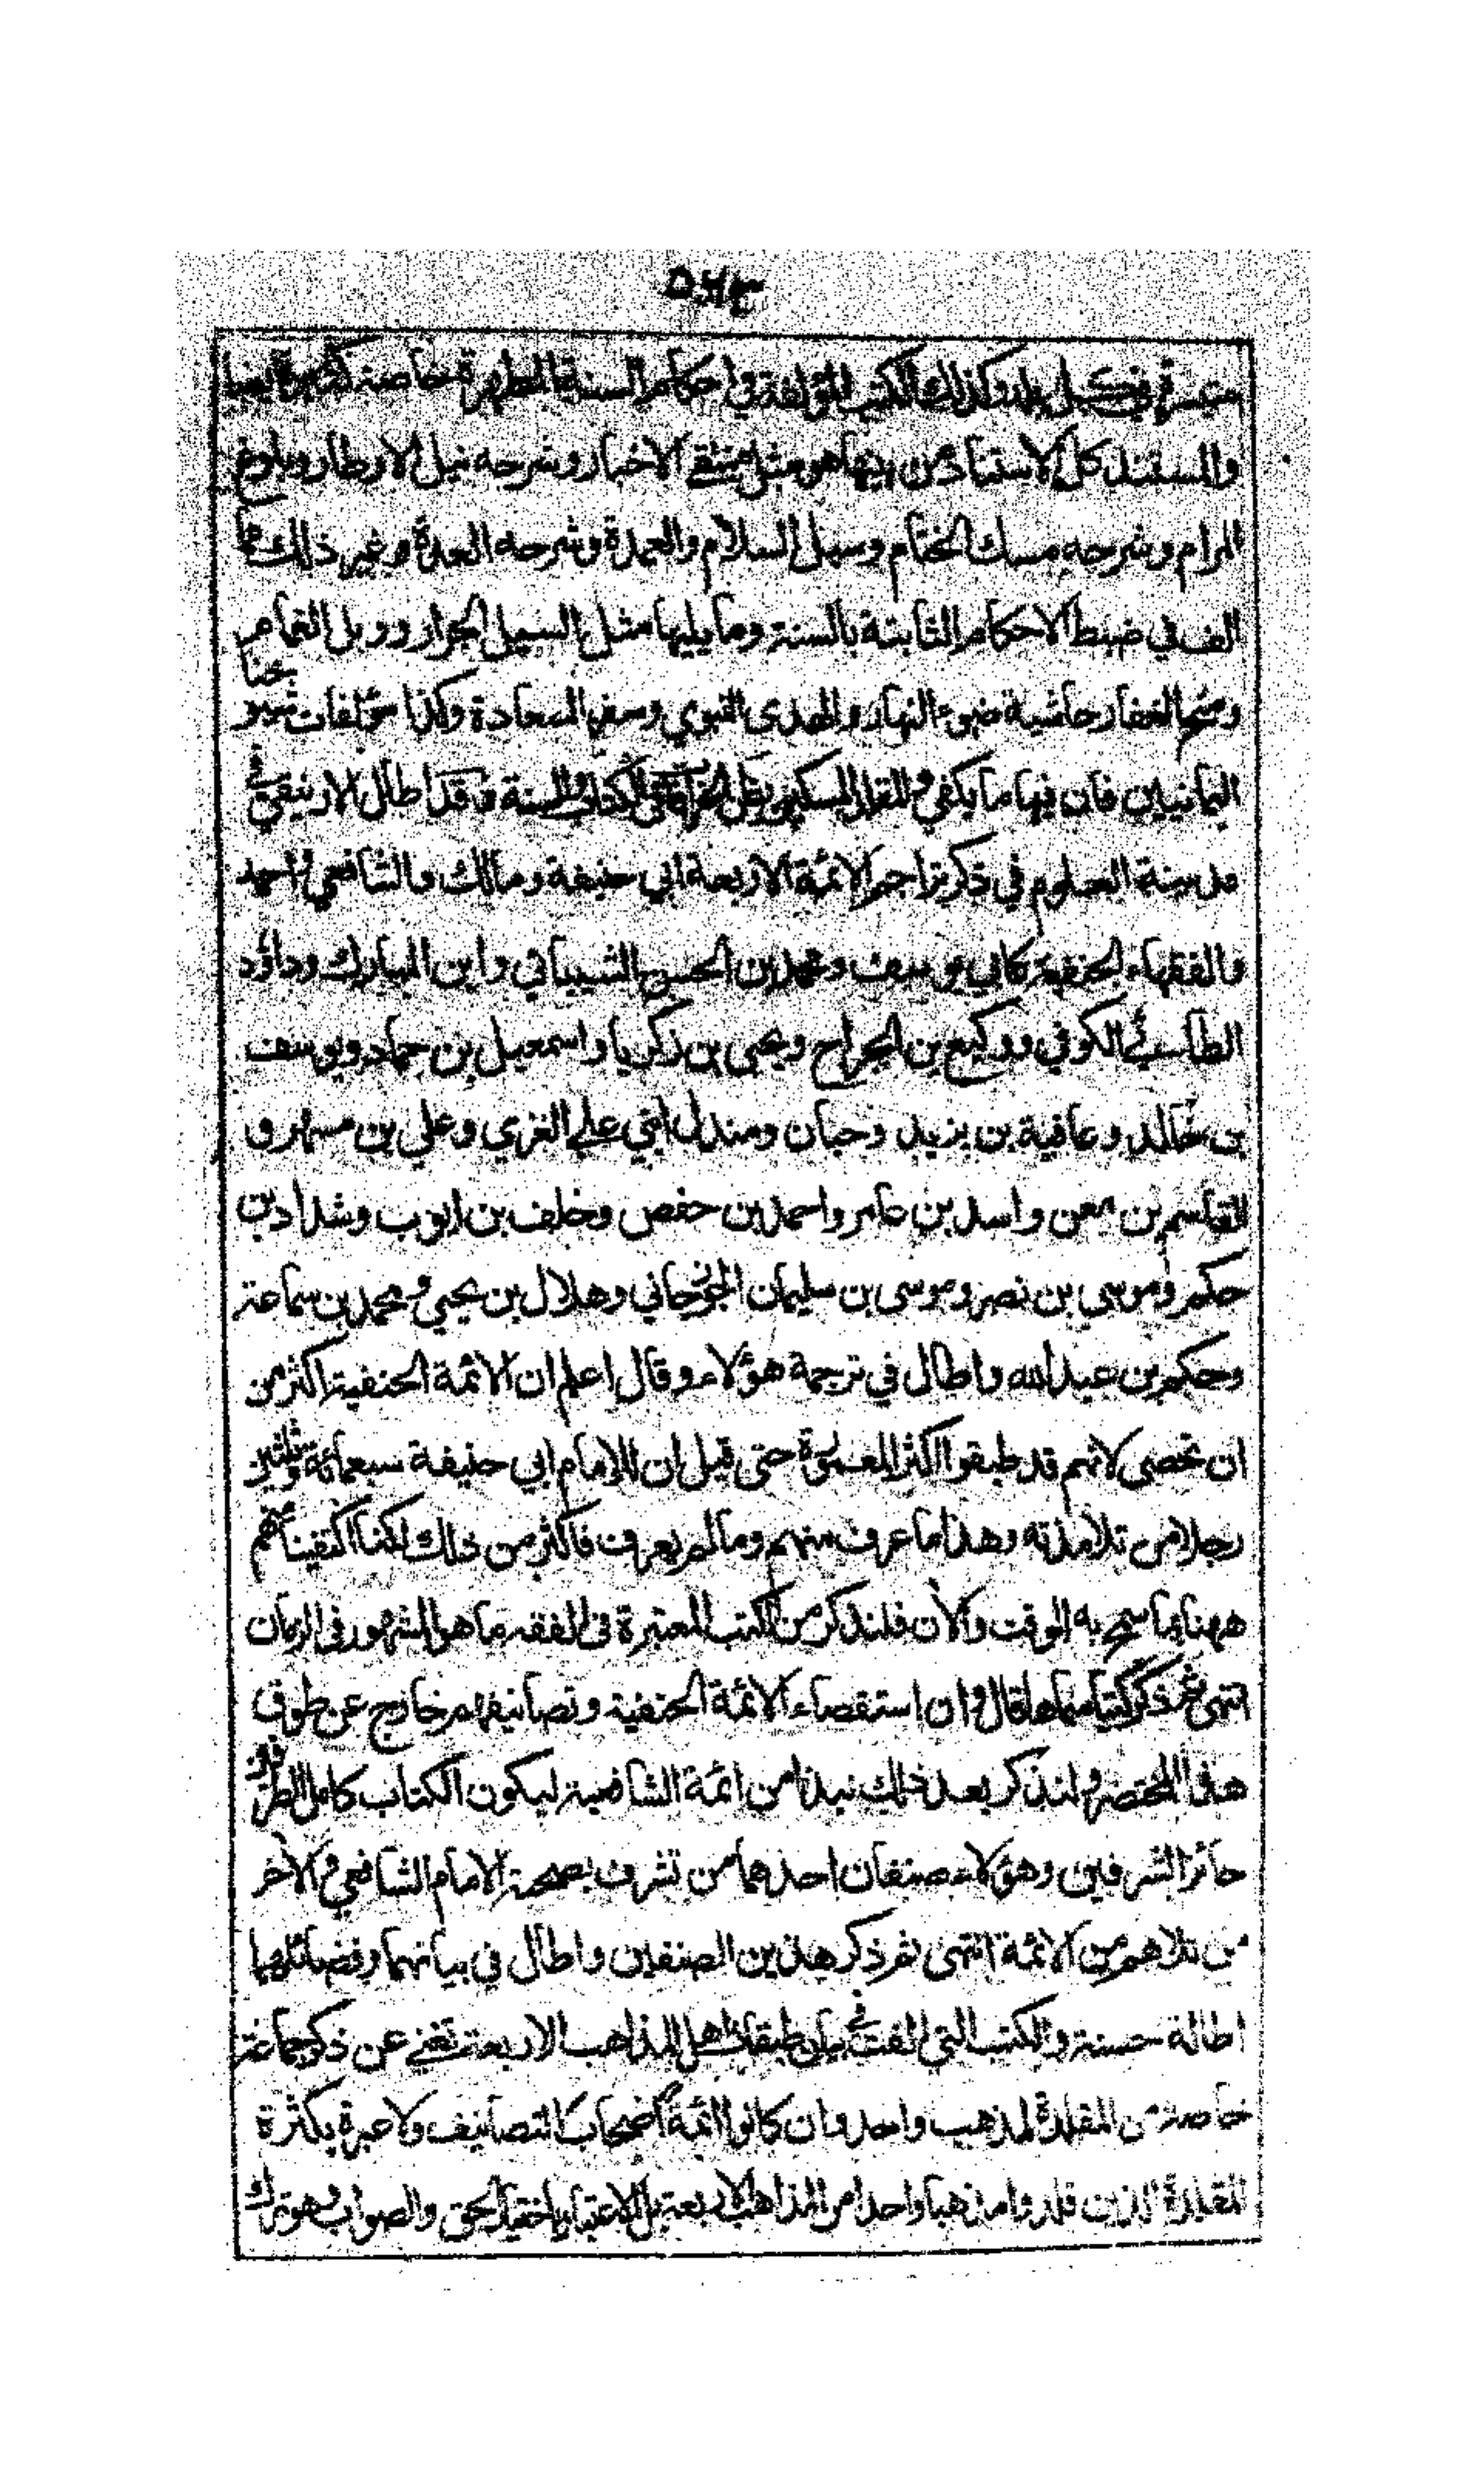 ٥٤٣
متيسرة في كل بلد وكذلك الكتب المؤلفة في احكام السنة المطهرة خاصة كثيرة ايضا
والمستند كل الاستناد من بينها هو مثل منتقى الاخبار وشرحه نيل الاوطار وبلوغ
المرام وشرحه مسك الختام وسبل السلام والعمدة وشرحه العدة وغير ذلك مما
الف في ضبط الاحكام الثابتة بالسنة وما يليها مثل السيل الجرار ووبل الغمام
ومنحة الغفار حاشية ضوء النهار والهدى النبوي وسفر السعادة وكذا مؤلفات شيوخنا
اليمانيين فان فيها ما يكفي والكتاب والسنة وقد اطال الارنيقي في
مدينة العلوم في ذكر تراجم الائمة الاربعة ابي حنيفة ومالك والشافعي واحمد
والفقهاء الحنفية كابي يوسف ومحمد بن الحسن الشيباني وابن المبارك وداؤد
الطائي الكوفي ووكيع بن الجراح ويحيى بن زكريا واسمعيل بن حماد ويوسف
بن خالد وعافية بن يزيد وحبان ومندل ابني علي الغزي وعلي بن مسهر و
القاسم بن معن واسد بن عامر واحمد بن حفص وخلف بن ايوب وشداد بن
حكم وموسى بن نصر وموسى بن سليمان الجوزجاني وهلال بن يحيى ومحمد بن سماعة
وحكيم بن عبد الله واطال في ترجمة هؤلاء وقال اعلم ان الائمة الحنفية اكثر من
ان تحصى لانهم قد طبقوا اكثر المعمورة حتى قيل ان للامام ابي حنيفة سبعمائة وثلثين
رجلا من تلامذته وهذا ما عرف منهم وما لم يعرف فاكثر من ذلك لكنا اكتفينا منهم
ههنا بما سمح به الوقت والآن فلنذكر من الكتب المعتبرة في الفقه ما هو المشهور في الزمان
انتهى ثم ذكر كتبا سماها قال وان استقصاء الائمة الحنفية وتصانيفهم خارج عن طوق
هذا المختصر ولنذكر بعد ذلك نبذا من ائمة الشافعية ليكون الكتاب كامل الطرفين
حائز الشرفين وهؤلاء صنفان احدهما من تشرف بصحبة الامام الشافعي والآخر
من تلاهم من الائمة انتهى ثم ذكر هذين الصنفين واطال في بيانهما وفضائلهما
اطالة حسنة والكتب التي الفت في بيان طبقات اهل المذاهب الاربعة تغني عن ذكر جماعة
خاصة من المقلدة لمذهب واحد وان كانوا ائمة اصحاب التصانيف ولا عبرة بكثرة
المقلدة الذين قلدوا مذهبا واحدا من المذاهب الاربعة بل الاعتبار باختيار الحق والصواب وهو ترك